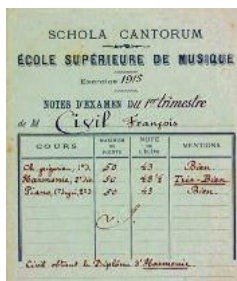 SCHOLA CANTORUM
ÉCOLE SUPÉRIEURE DE MUSIQUE
Exercice 1915
NOTES D'EXAMEN DU 1er trimestre
de M Civil François
COURS MAXIMUM DE POINTS NOTE DE L'ÉLÈVE MENTIONS
50 43 Bien
Harmonie, 50 48 ½ Très-Bien
Piano, 50 43 Bien
Civil obtient le Diplôme d'Harmonie.